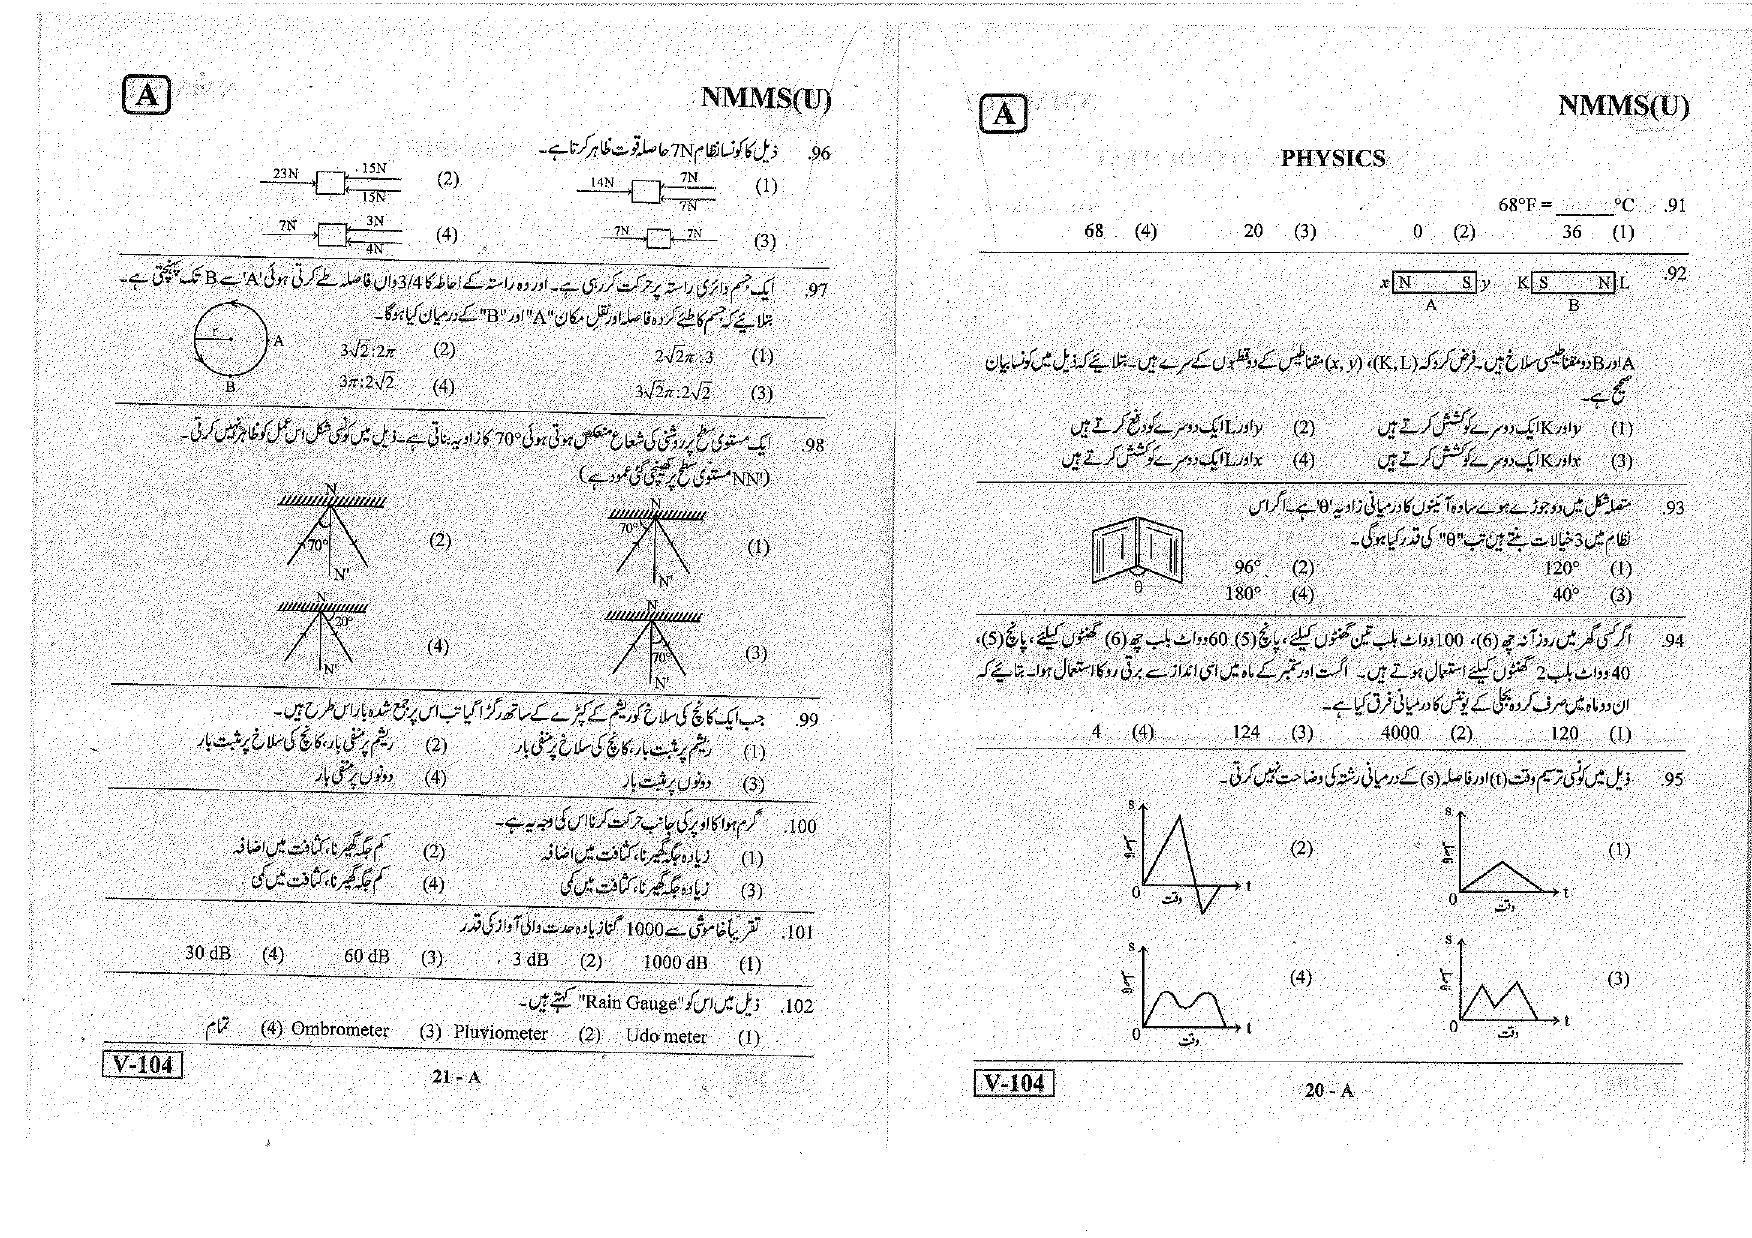 A
NMMS(U)
PHYSICS
.91 68°F = ______°C
(1) 36 (2) 0 (3) 20 (4) 68
.92
x N S y K S N L
A B
A اور B دو مقناطیسی سلاخ ہیں۔ فرض کرو کہ (K, L)، (x, y) مقناطیس کے دو قطبوں کے سرے ہیں۔ بتلائیے کہ ذیل میں کونسا بیان
صحیح ہے۔
(1) y اور K ایک دوسرے کو کشش کرتے ہیں (2) y اور L ایک دوسرے کو دفع کرتے ہیں
(3) x اور K ایک دوسرے کو کشش کرتے ہیں (4) x اور L ایک دوسرے کو کشش کرتے ہیں
.93 متصلہ شکل میں دو جوڑے ہوے سادہ آئینوں کا درمیانی زاویہ 'θ' ہے۔ اگر اس
نظام میں 3 خیالات بنتے ہیں تب "θ" کی قدر کیا ہوگی۔
(1) 120° (2) 96°
(3) 40° (4) 180°
θ
.94 اگر کسی گھر میں روزآنہ چھ (6)، 100 وواٹ بلب تین گھنٹوں کیلئے، پانچ (5) 60 وواٹ بلب چھ (6) گھنٹوں کیلئے، پانچ (5)،
40 وواٹ بلب 2 گھنٹوں کیلئے استعمال ہوتے ہیں۔ اگست اور ستمبر کے ماہ میں اسی انداز سے برقی رو کا استعمال ہوا۔ بتائیے کہ
ان دو ماہ میں صرف کردہ بجلی کے یونٹس کا درمیانی فرق کیا ہے۔
(1) 120 (2) 4000 (3) 124 (4) 4
.95 ذیل میں کونسی ترسیم وقت (t) اور فاصلہ (s) کے درمیانی رشتہ کی وضاحت نہیں کرتی۔
(1) s فاصلہ 0 وقت t (2) s فاصلہ 0 وقت t
(3) s فاصلہ 0 وقت t (4) s فاصلہ 0 وقت t
V-104
20 - A
A
NMMS(U)
.96 ذیل کا کونسا نظام 7N حاصلہ قوت ظاہر کرتا ہے۔
(1) 14N 7N 7N (2) 23N 15N 15N
(3) 7N 7N (4) 7N 3N 4N
.97 ایک جسم دائری راستہ پر حرکت کررہی ہے۔ اور وہ راستہ کے احاطہ کا 3/4 واں فاصلہ طے کرتی ہوئی 'A' سے B تک پہنچتی ہے۔
بتلائیے کہ جسم کا طئے کردہ فاصلہ اور نقل مکان "A" اور "B" کے درمیان کیا ہوگا۔
(1) 2√2π : 3 (2) 3√2 : 2π
(3) 3√2π : 2√2 (4) 3π : 2√2
r A B
.98 ایک مستوی سطح پر روشنی کی شعاع منعکس ہوتی ہوئی 70° کا زاویہ بناتی ہے۔ ذیل میں کونسی شکل اس عمل کو ظاہر نہیں کرتی۔
(NN' مستوی سطح پر کھینچی گئی عمود ہے)
(1) N 70° N' (2) N 70° N'
(3) N 70° N' (4) N 20° N'
.99 جب ایک کانچ کی سلاخ کو ریشم کے کپڑے کے ساتھ رگڑا گیا تب اس پر جمع شدہ بار اس طرح ہیں۔
(1) ریشم پر مثبت بار، کانچ کی سلاخ پر منفی بار (2) ریشم پر منفی بار، کانچ کی سلاخ پر مثبت بار
(3) دونوں پر مثبت بار (4) دونوں پر منفی بار
.100 گرم ہوا کا اوپر کی جانب حرکت کرنا اس کی وجہ یہ ہے۔
(1) زیادہ جگہ گھیرنا، کثافت میں اضافہ (2) کم جگہ گھیرنا، کثافت میں اضافہ
(3) زیادہ جگہ گھیرنا، کثافت میں کمی (4) کم جگہ گھیرنا، کثافت میں کمی
.101 تقریباً خاموشی سے 1000 گنا زیادہ حدت والی آواز کی قدر
(1) 1000 dB (2) 3 dB (3) 60 dB (4) 30 dB
.102 ذیل میں اس کو "Rain Gauge" کہتے ہیں۔
(1) Udo meter (2) Pluviometer (3) Ombrometer (4) تمام
V-104
21 - A